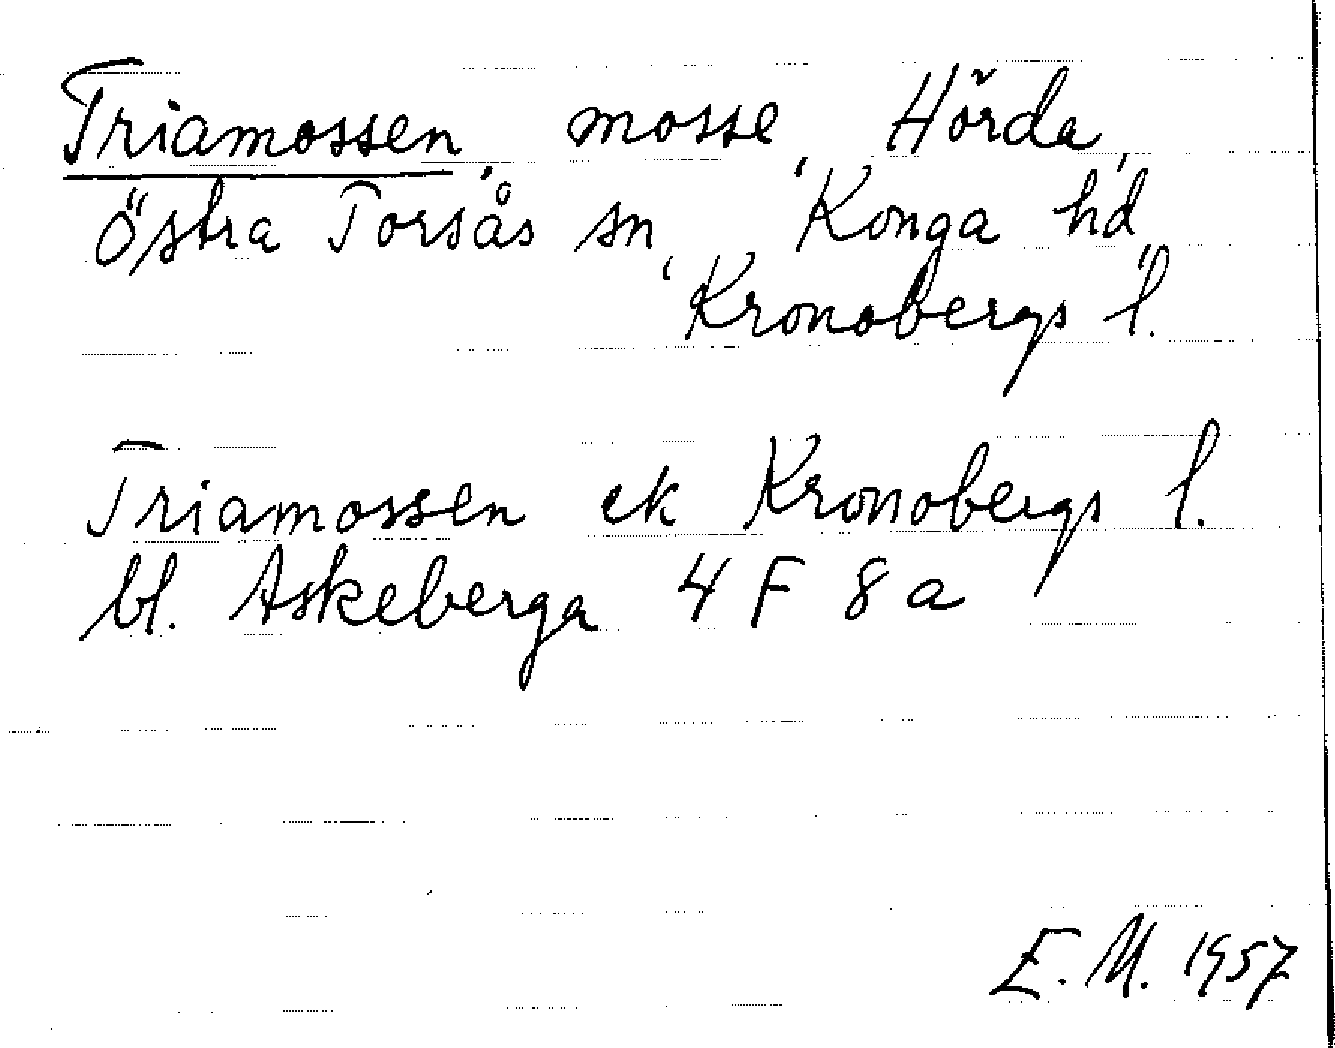 Triamossen, mosse, Hörda,
Östra Torsås sn, Konga hd,
Kronobergs l.
Triamossen ek Kronobergs l.
bl. Askeberga 4 F 8 a
E. M. 1957